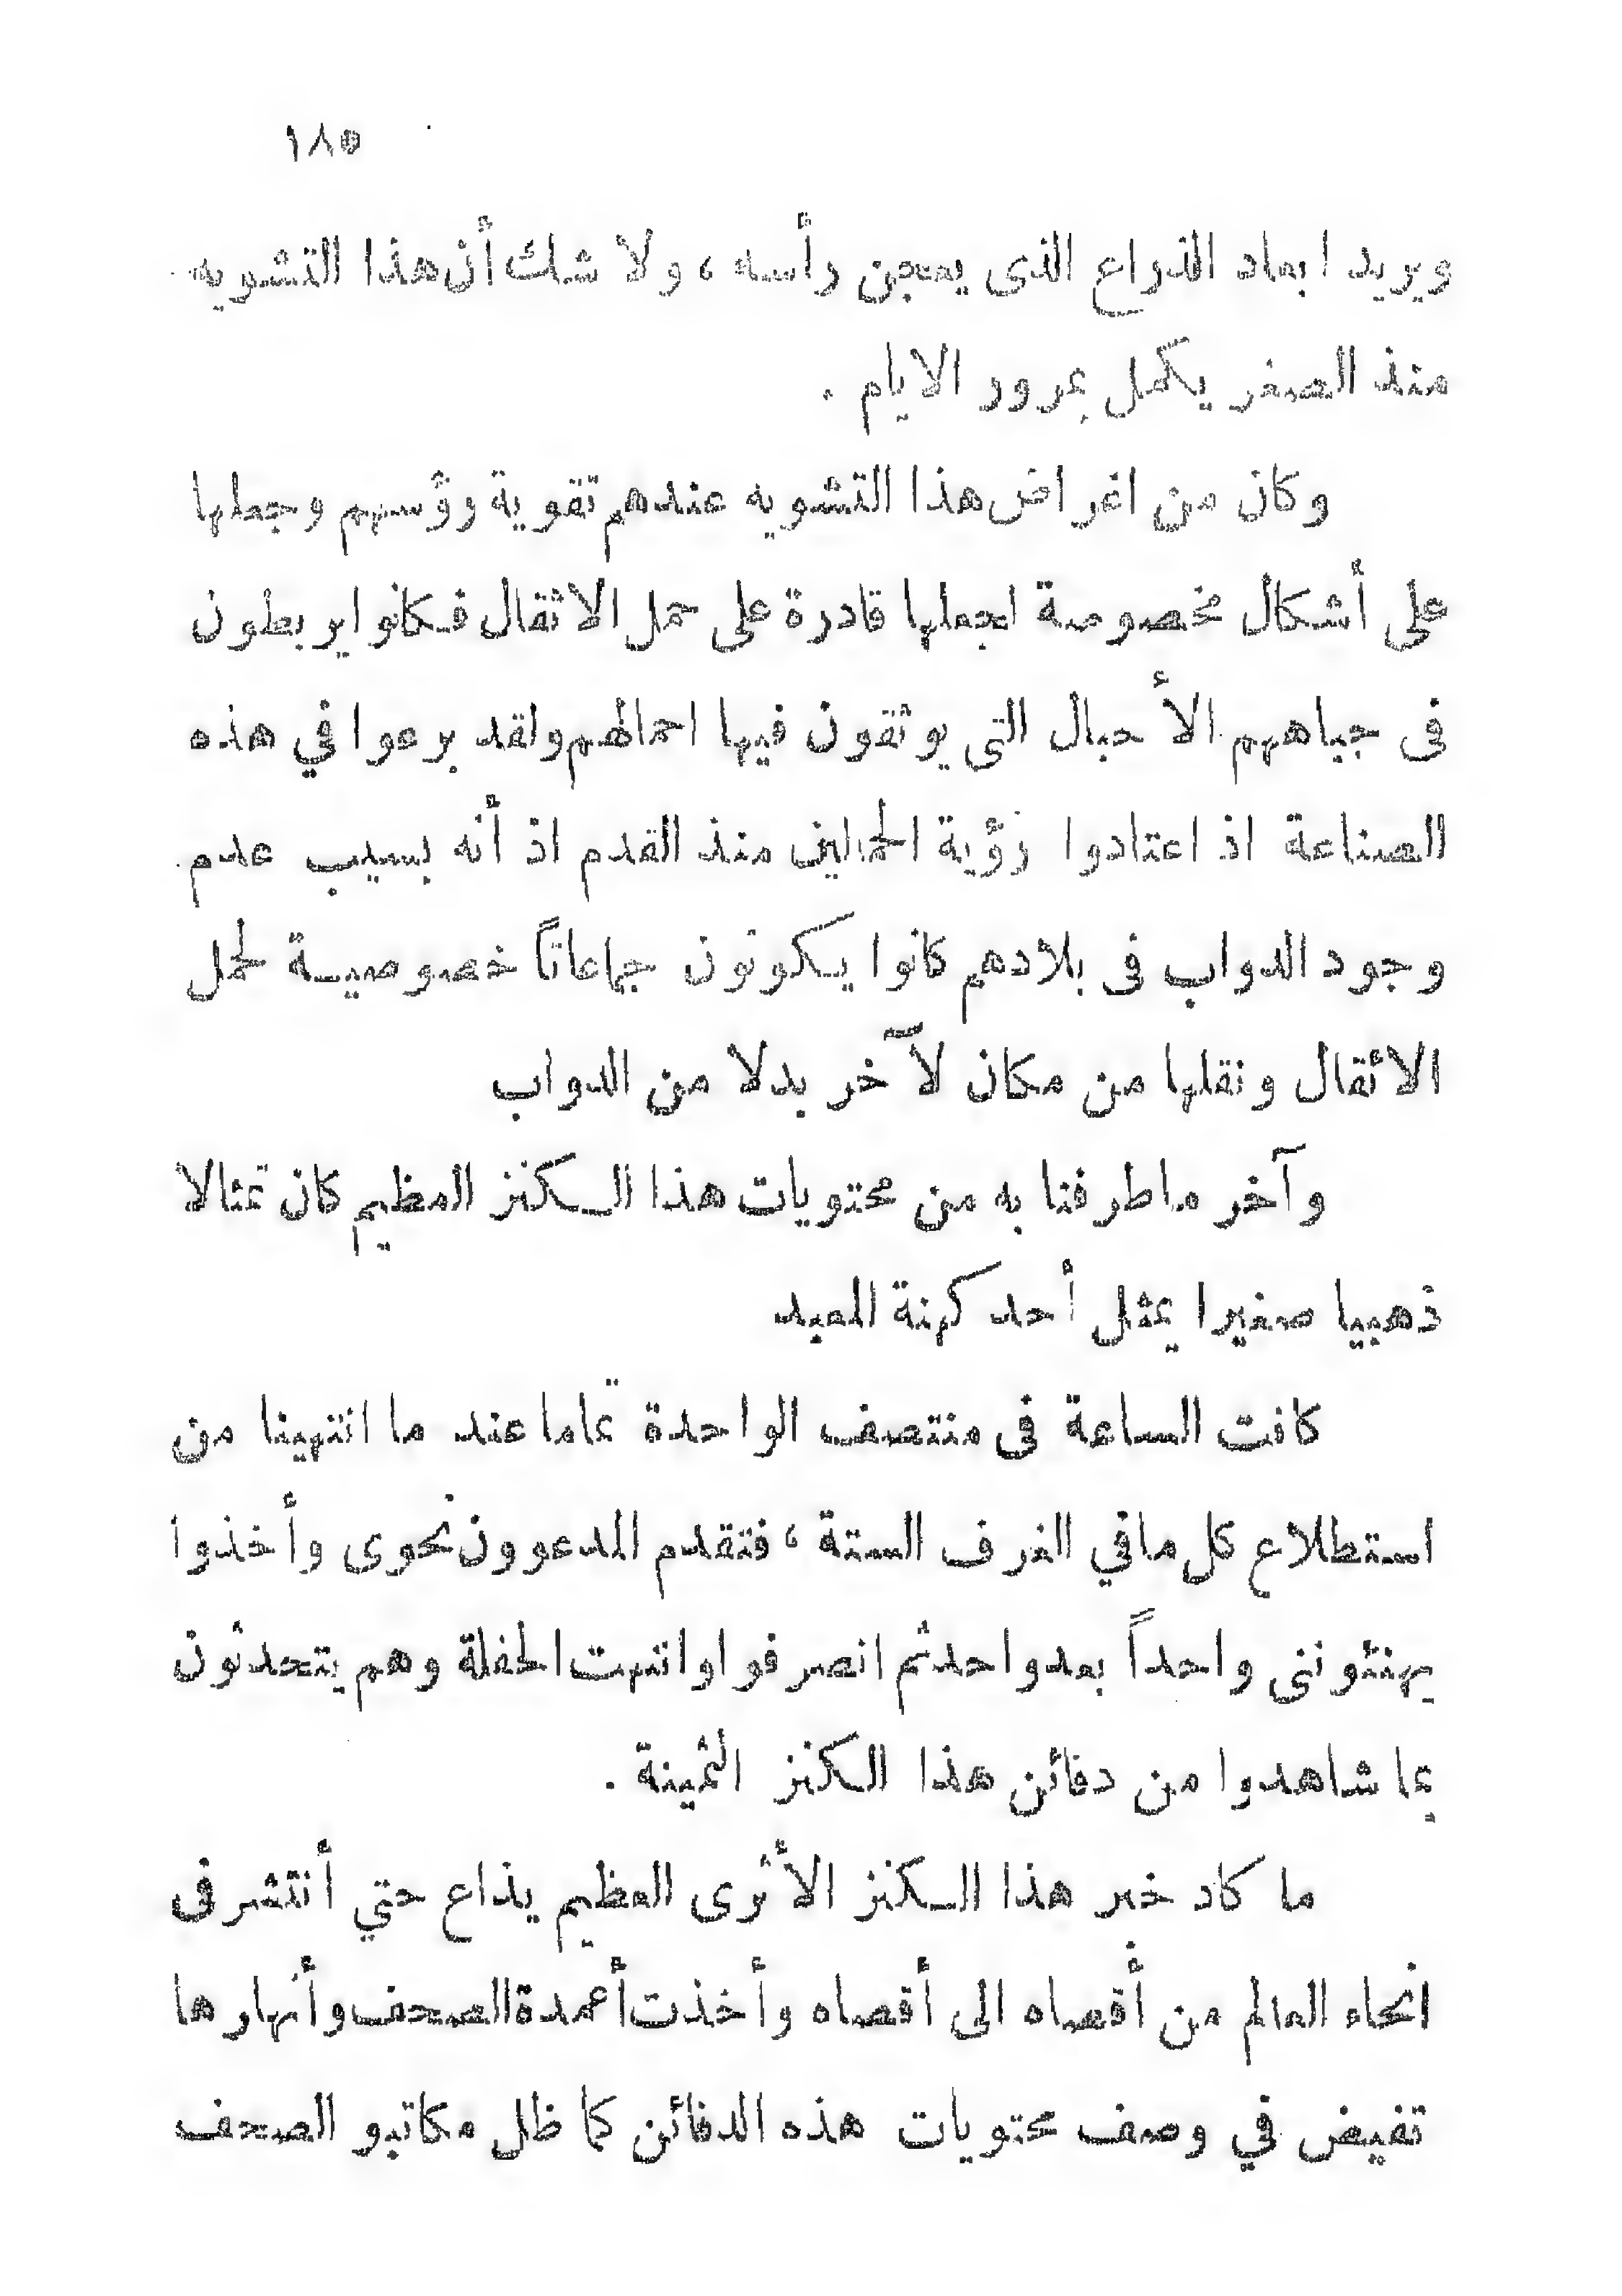 ١٨٥
ويريد ابعاد الذراع الذى يعجن رأسه ، ولا شك أن هذا التشويه
منذ الصغر يكمل بمرور الايام .
وكان من اغراض هذا التشويه عندهم تقوية رؤسهم وجعلها
على أشكال مخصوصة لجعلها قادرة على حمل الاثقال فكانوا يربطون
فى جباههم الأحبال التى يوثقون فيها احمالهم ولقد برعوا في هذه
الصناعة اذ اعتادوا رؤية الحمالين منذ القدم اذ أنه بسبب عدم
وجود الدواب فى بلادهم كانوا يكونون جماعاتاً خصوصية لحمل
الاثقال ونقلها من مكان لآخر بدلا من الدواب
وآخر ما طرفنا به من محتويات هذا الكنز العظيم كان تمثالا
ذهبيا صغيرا يمثل أحد كهنة المعبد
كانت الساعة فى منتصف الواحدة تماما عند ما انتهينا من
استطلاع كل مافي الغرف الستة ، فتقدم المدعوون نحوى وأخذوا
يهنئوننى واحداً بعد واحد ثم انصرفوا وانتهت الحفلة وهم يتحدثون
بما شاهدوا من دفائن هذا الكنز الثمينة .
ما كاد خبر هذا الكنز الأثرى العظيم يذاع حتي أنتشر فى
انحاء العالم من أقصاه الى أقصاه وأخذت أعمدة الصحف وأنهارها
تفيض في وصف محتويات هذه الدفائن كما ظل مكاتبو الصحف